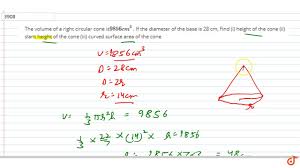 The volume of a right circular cone is 9856cm³. If the diameter of the base is 28 cm, Find (i) height of the cone (ii)
slant height of the cone (iii) curved surface area of the cone
V = 9856 cm³
D = 28cm
D = 2r
r = 14cm
V = 1/3 πr²h = 9856
1/3 × 22/7 × (14)² × h = 9856